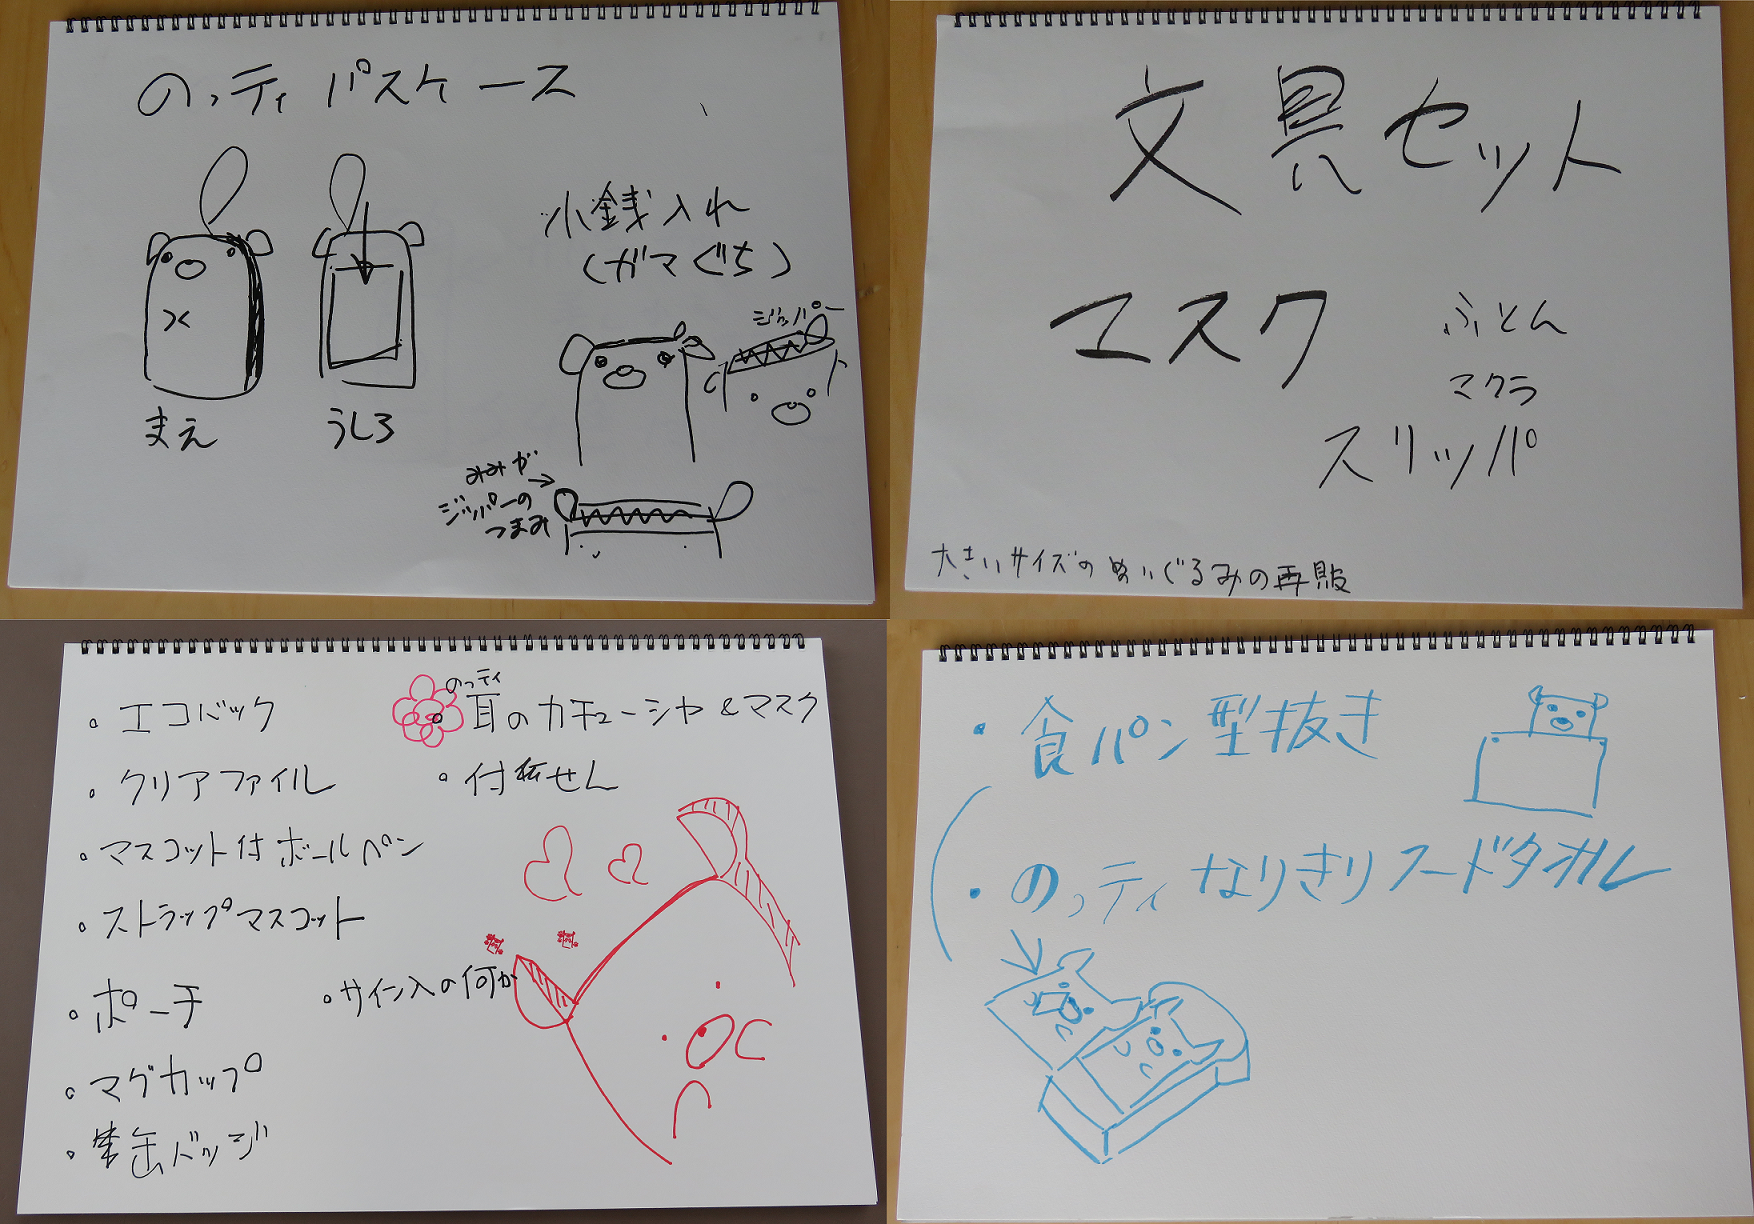 のッティ パスケース
まえ
うしろ
小銭入れ
(ガマぐち)
ジッパー
みみが
ジッパーの
つまみ
文具セット
マスク
ふとん
マクラ
スリッパ
大きいサイズのぬいぐるみの再販
エコバック
クリアファイル
マスコット付ボールペン
ストラップマスコット
ポーチ
マグカップ
缶バッジ
のッティ
耳のカチューシャ&マスク
付せん
サイン入の何か
・食パン型抜き
・のッティなりきりフードタオル